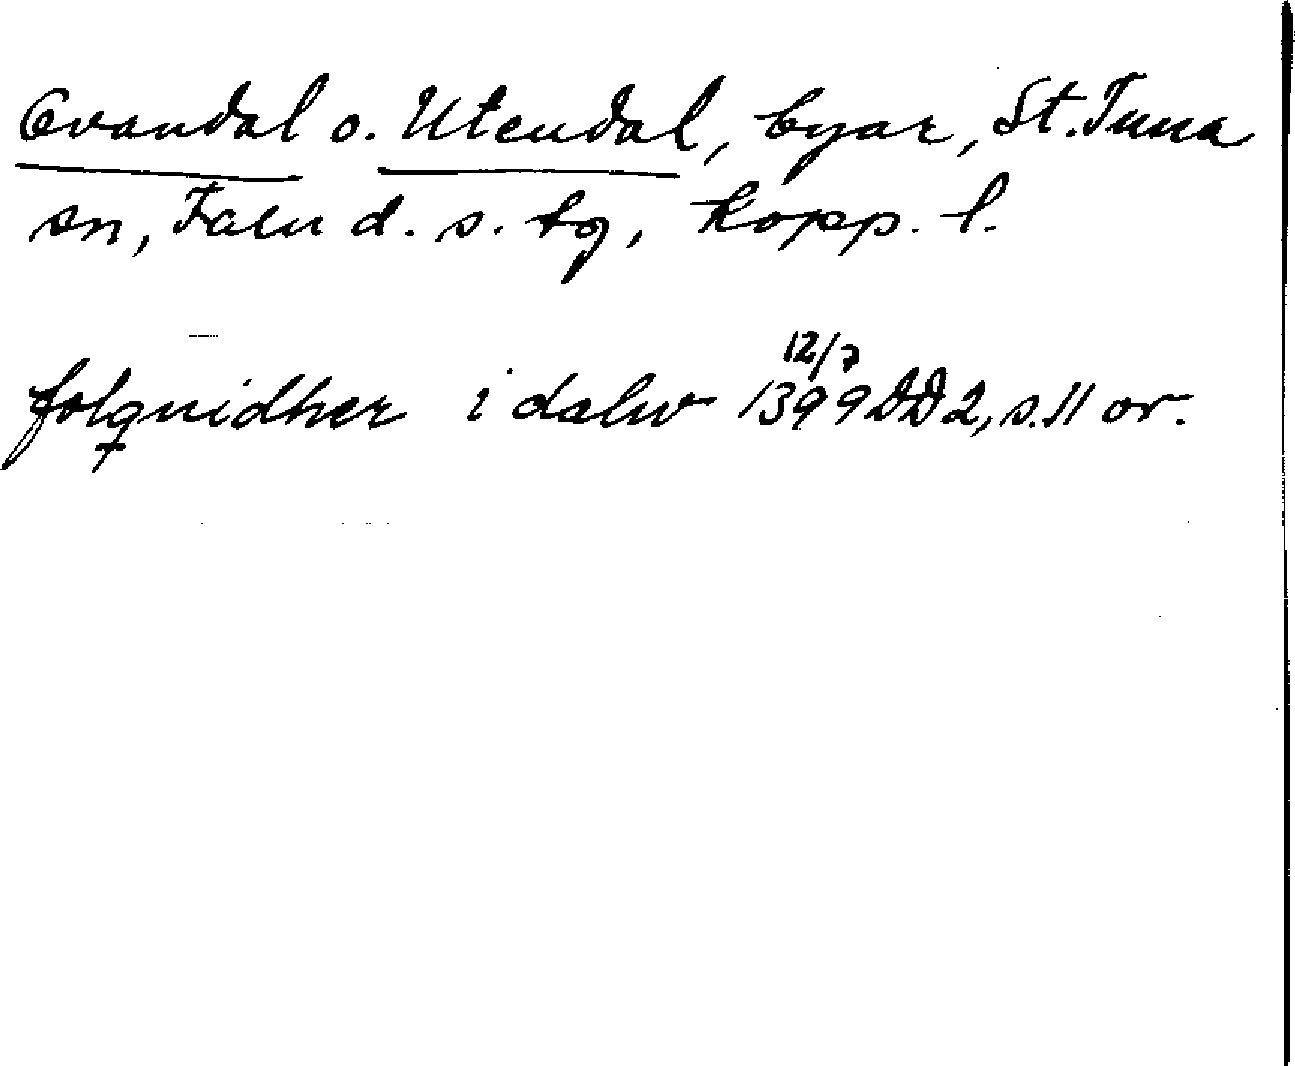 Ovandal o. Utendal, byar, St. Tuna
sn, Falu d. s. tg, Kopp. l.
folquidher i daluv 12/7 1399 DD 2, s. 11 or.